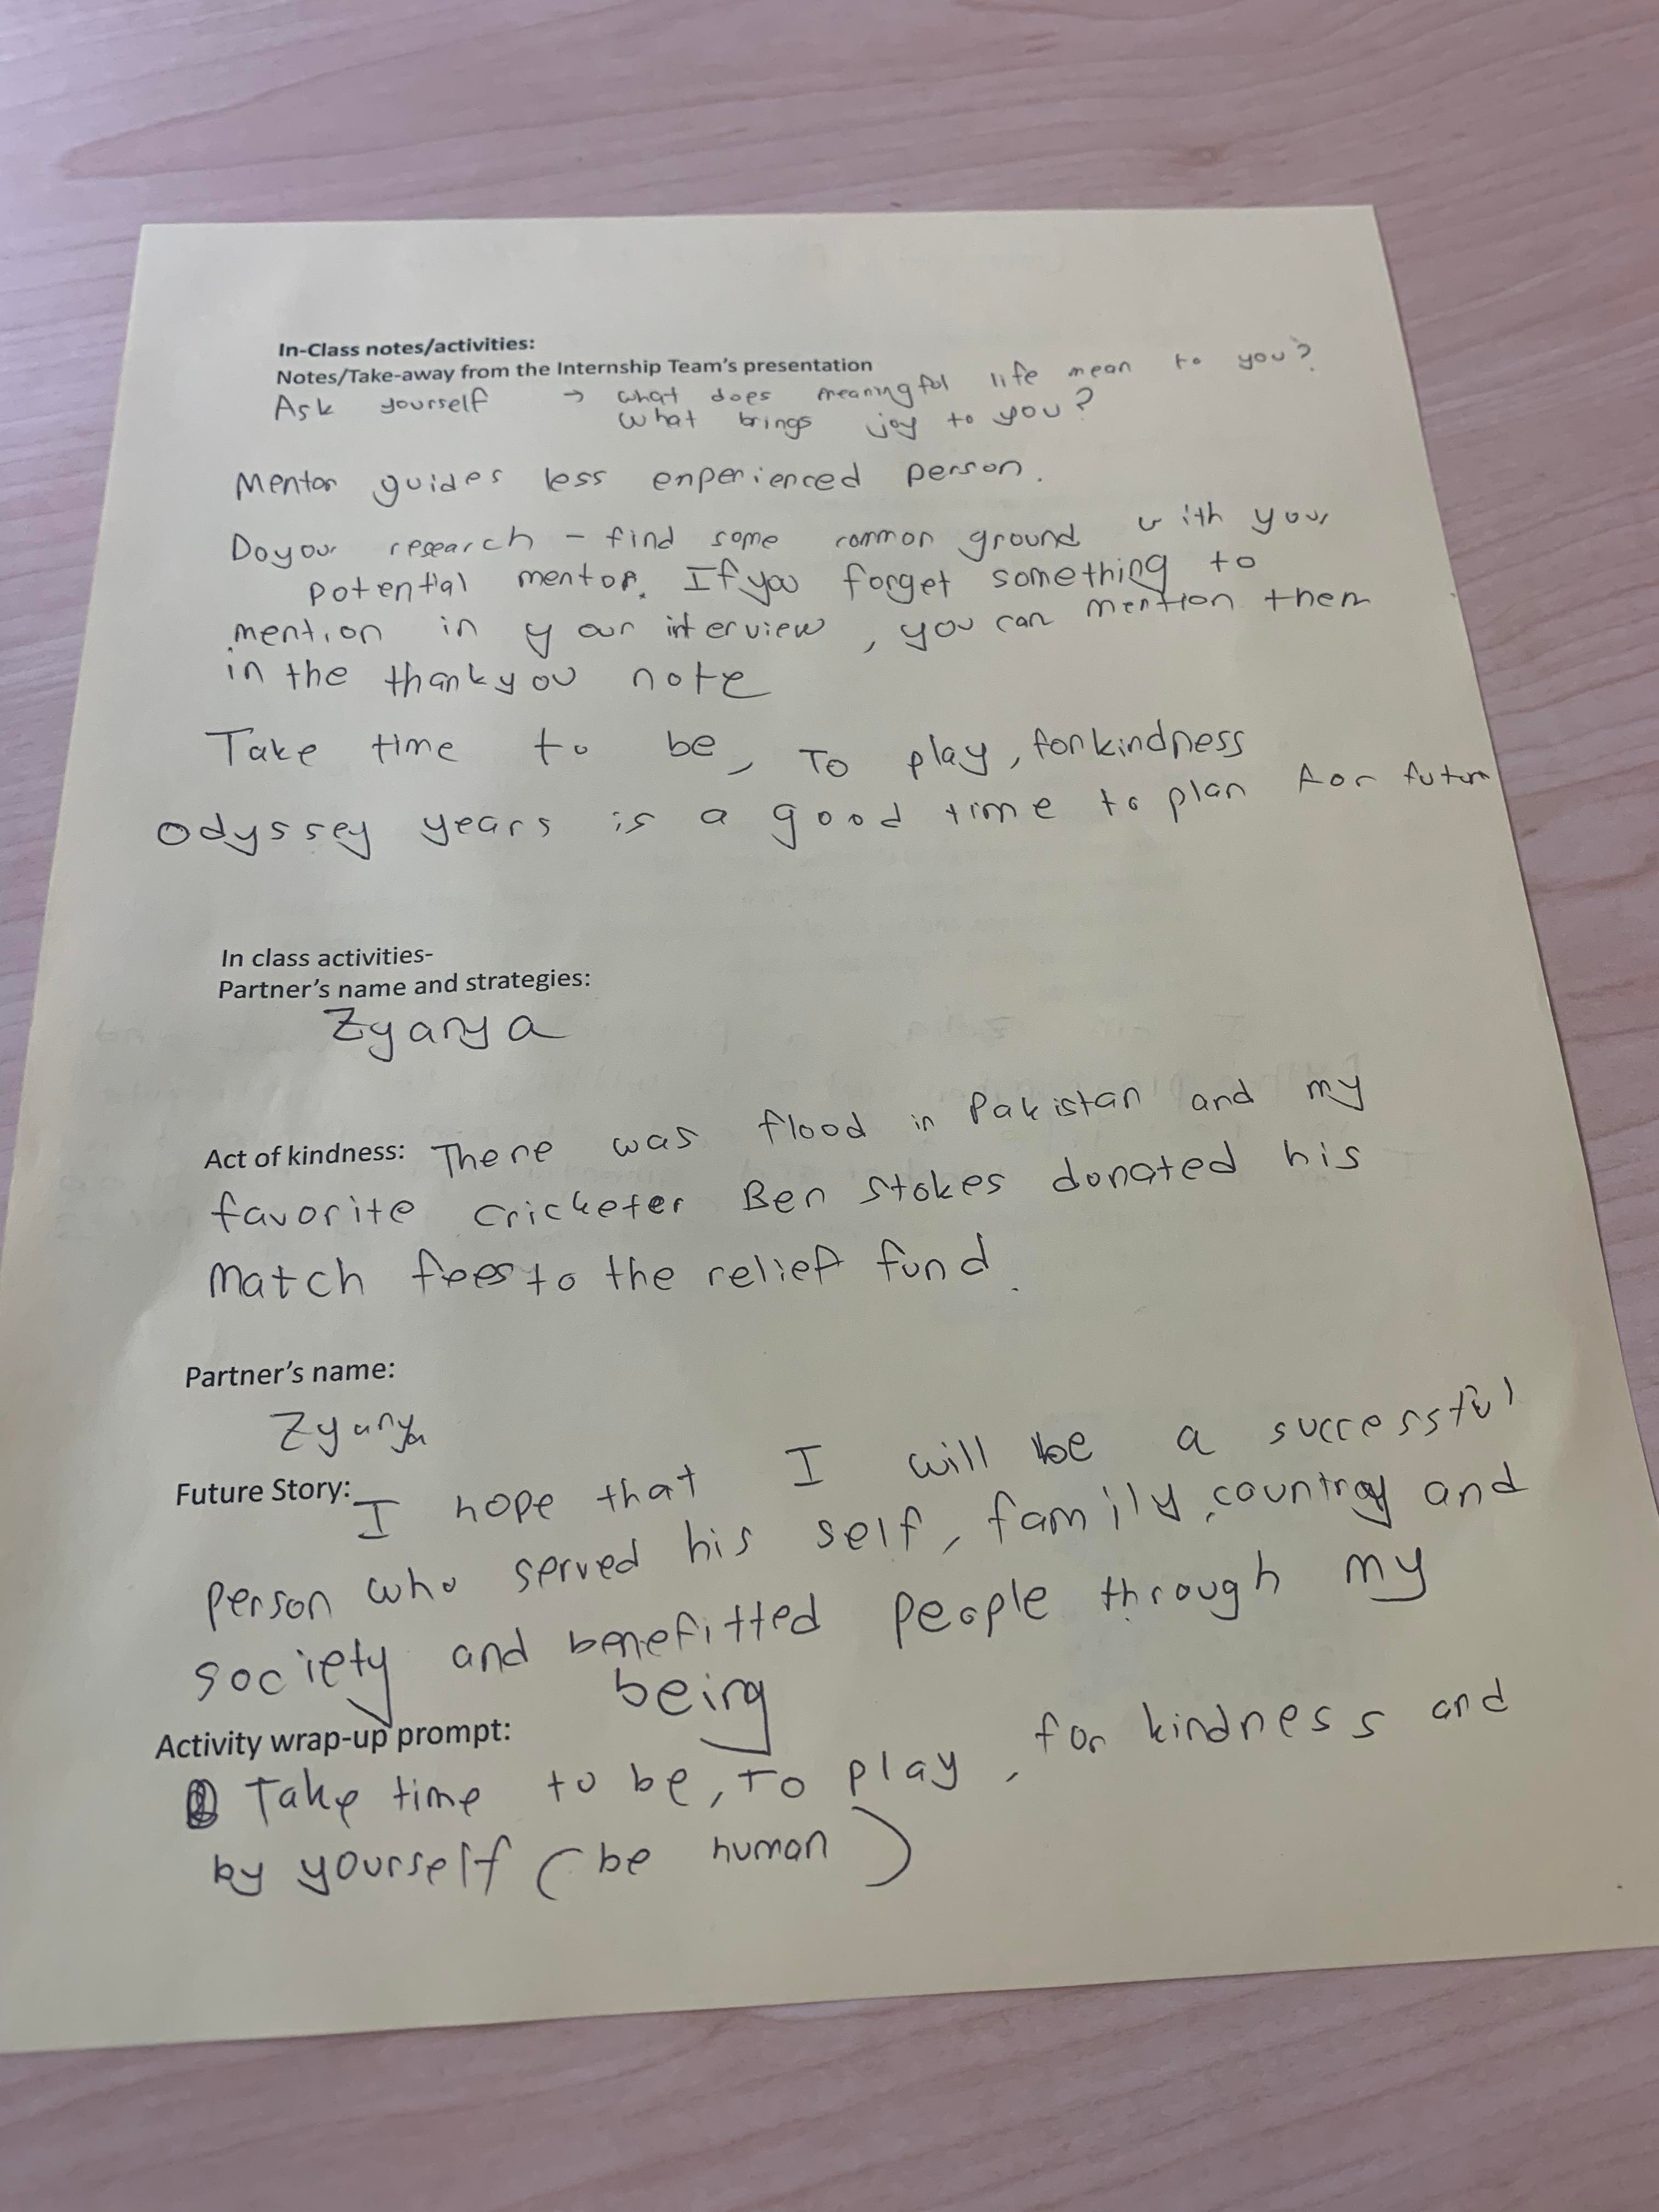 In-Class notes/activities:
Notes/Take-away from the Internship Team's presentation
Ask yourself → what does meaningful life mean to you?
what brings joy to you?
Mentor guides less enperienced person.
Do your research - find some common ground with your
potential mentor. If you forget something to
mention in your interview, you can mention them
in the thankyou note
Take time to be, To play, for kindness
Odyssey years is a good time to plan for future
In class activities-
Partner's name and strategies:
Zyanya
Act of kindness: There was flood in Pakistan and my
favorite cricketer Ben Stokes donated his
match fees to the relief fund.
Partner's name:
Zyanya
Future Story: I hope that I will be a successful
person who served his self, family, country and
society and benefitted people through my
being
Activity wrap-up prompt:
Take time to be, To play, for kindness and
by yourself (be human)